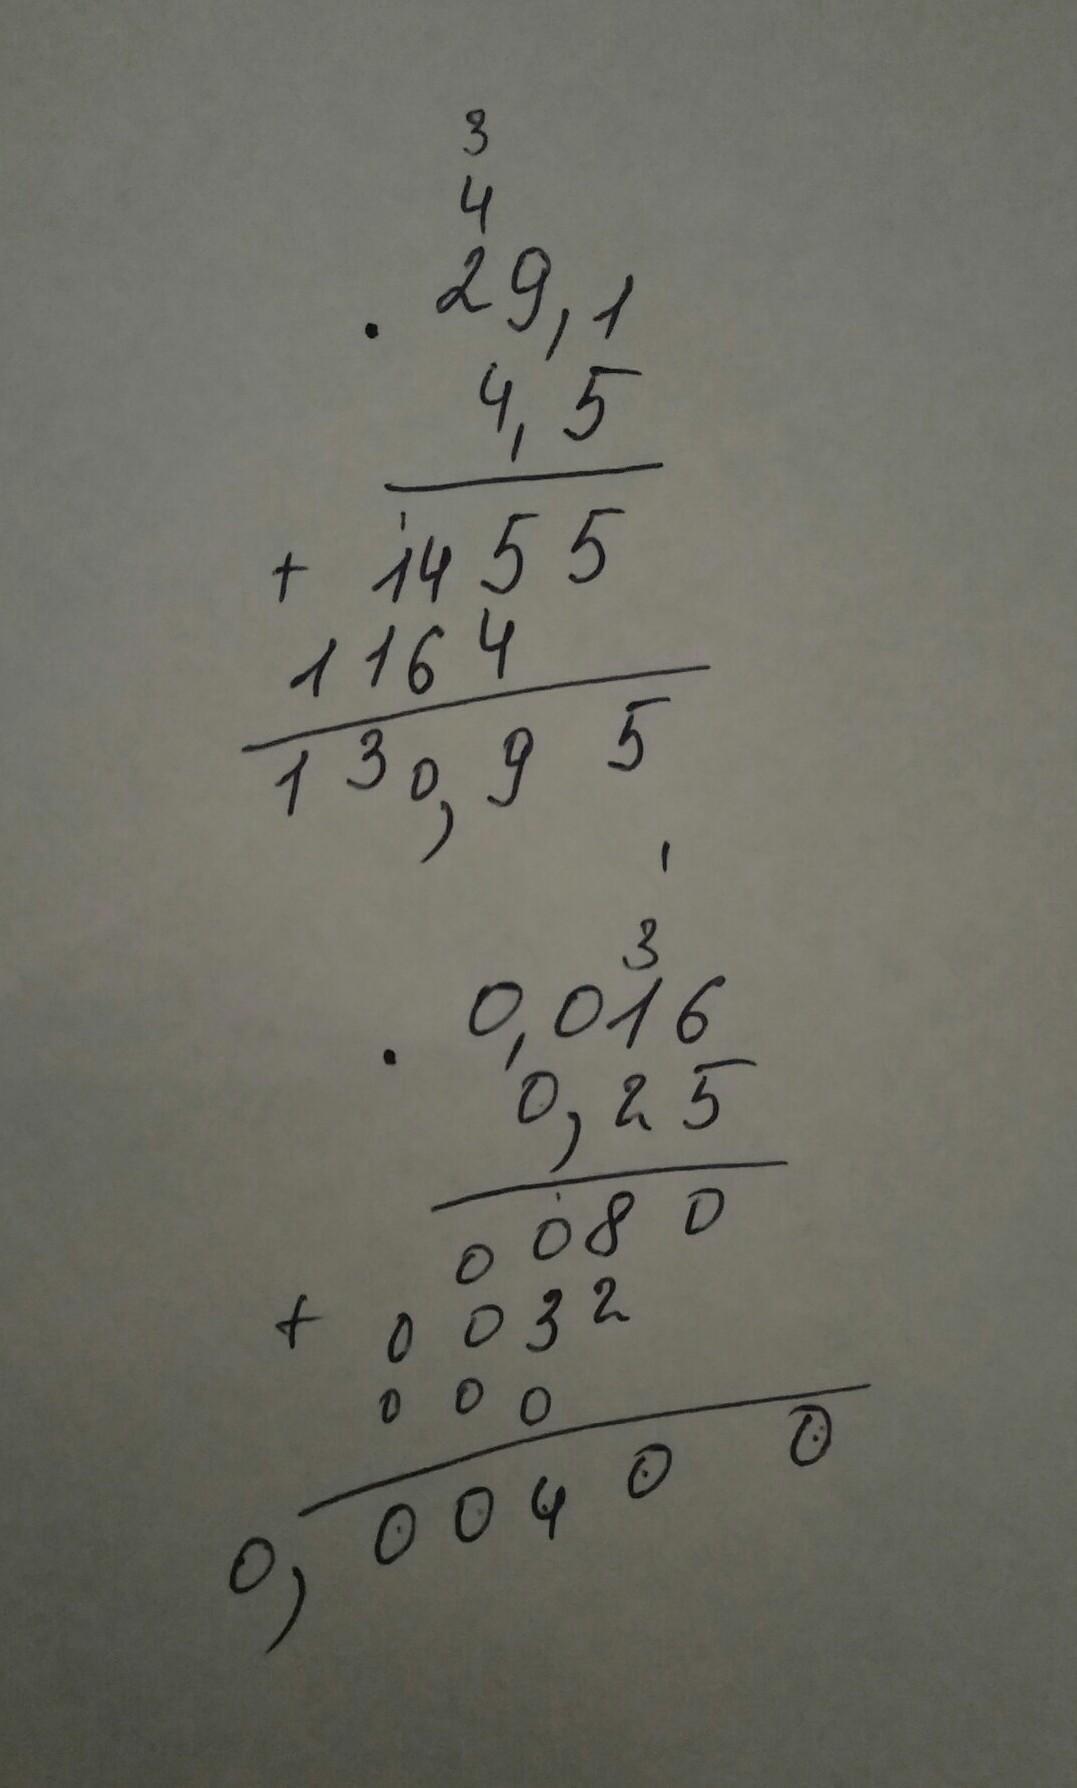 3
4
29,1
·
4,5
1
+ 1455
1164
130,95
1
3
· 0,016
0,25
0080
+ 0032
000
0,00400